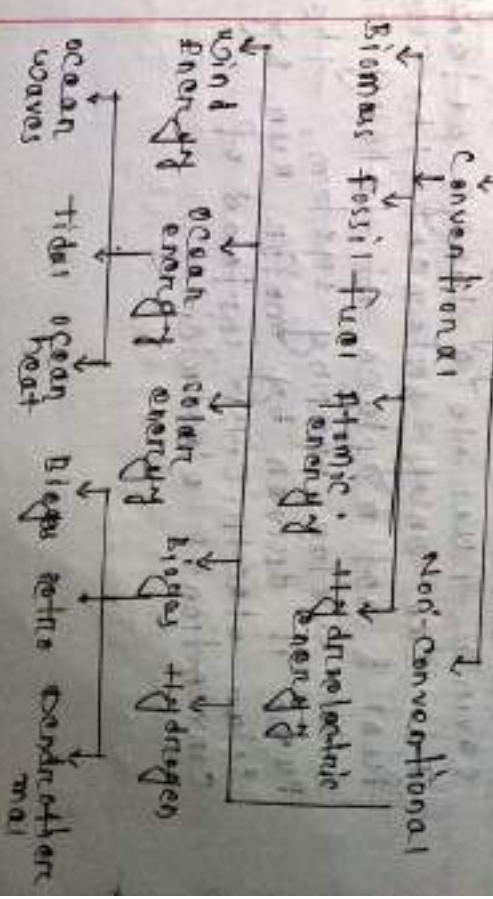 Conventional Non-Conventional
Biomass fossil fuel Atomic energy Hydroelectric energy
Wind Energy Ocean energy Solar energy Biogas Hydrogen
Ocean waves tidal Ocean heat Dendrothermal